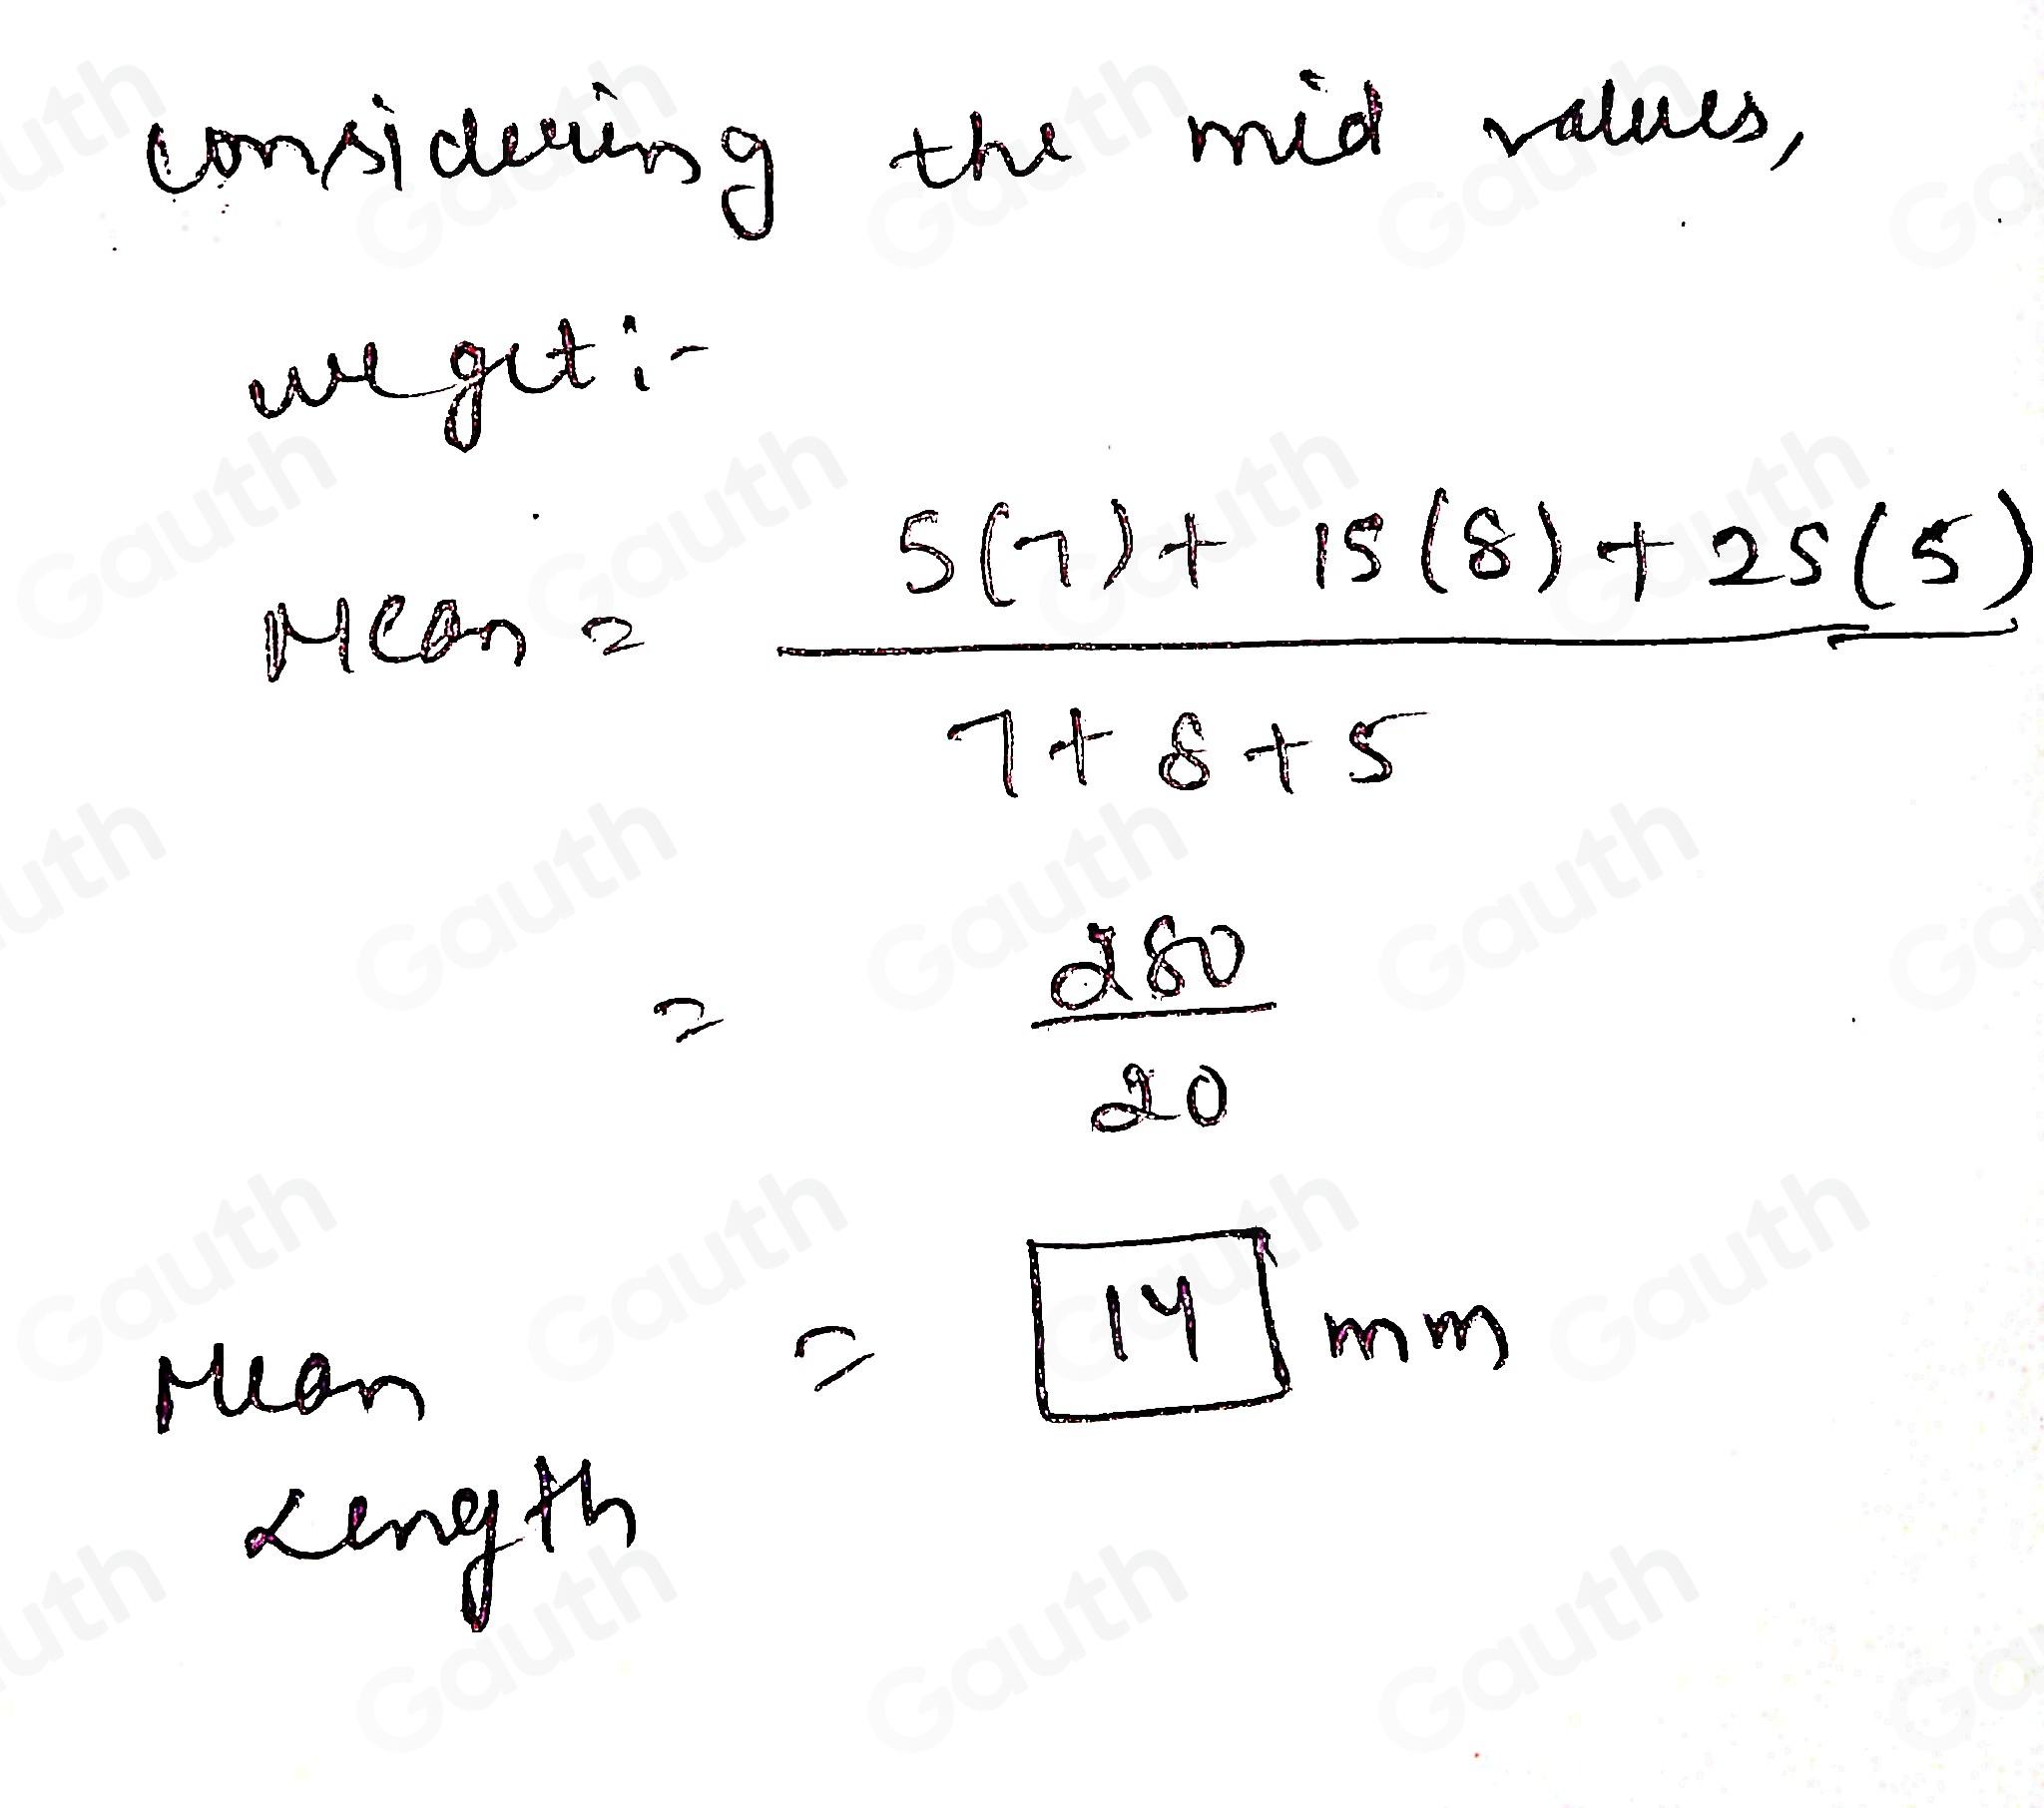 considering the mid values,
we get :-
Mean = 5(7) + 15(8) + 25(5)
7 + 8 + 5
= 280
20
Mean = 14 mm
Length
Gauth